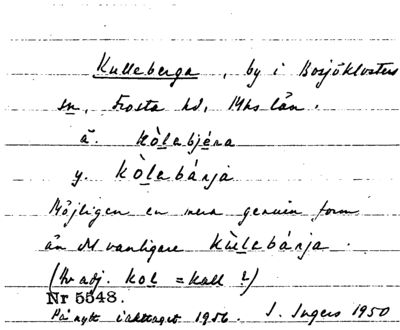 Kulleberga, by i Bosjöklosters
sn, Frosta hd, Mhs län.
ä. kòlebjéra
y. kòlebárja
Möjligen en mera genuin form
än d vanligare kùlebárja.
(Av adj. kol = kall ?)
Nr 5548.
På nytt iakttaget 1956. I. Ingers 1950